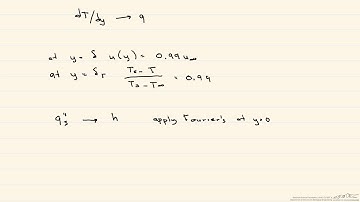 dT/dy → q
at y = δ u(y) = 0.99 u∞
at y = δT (Ts - T) / (Ts - T∞) = 0.99
q"s → h apply Fourier's at y=0